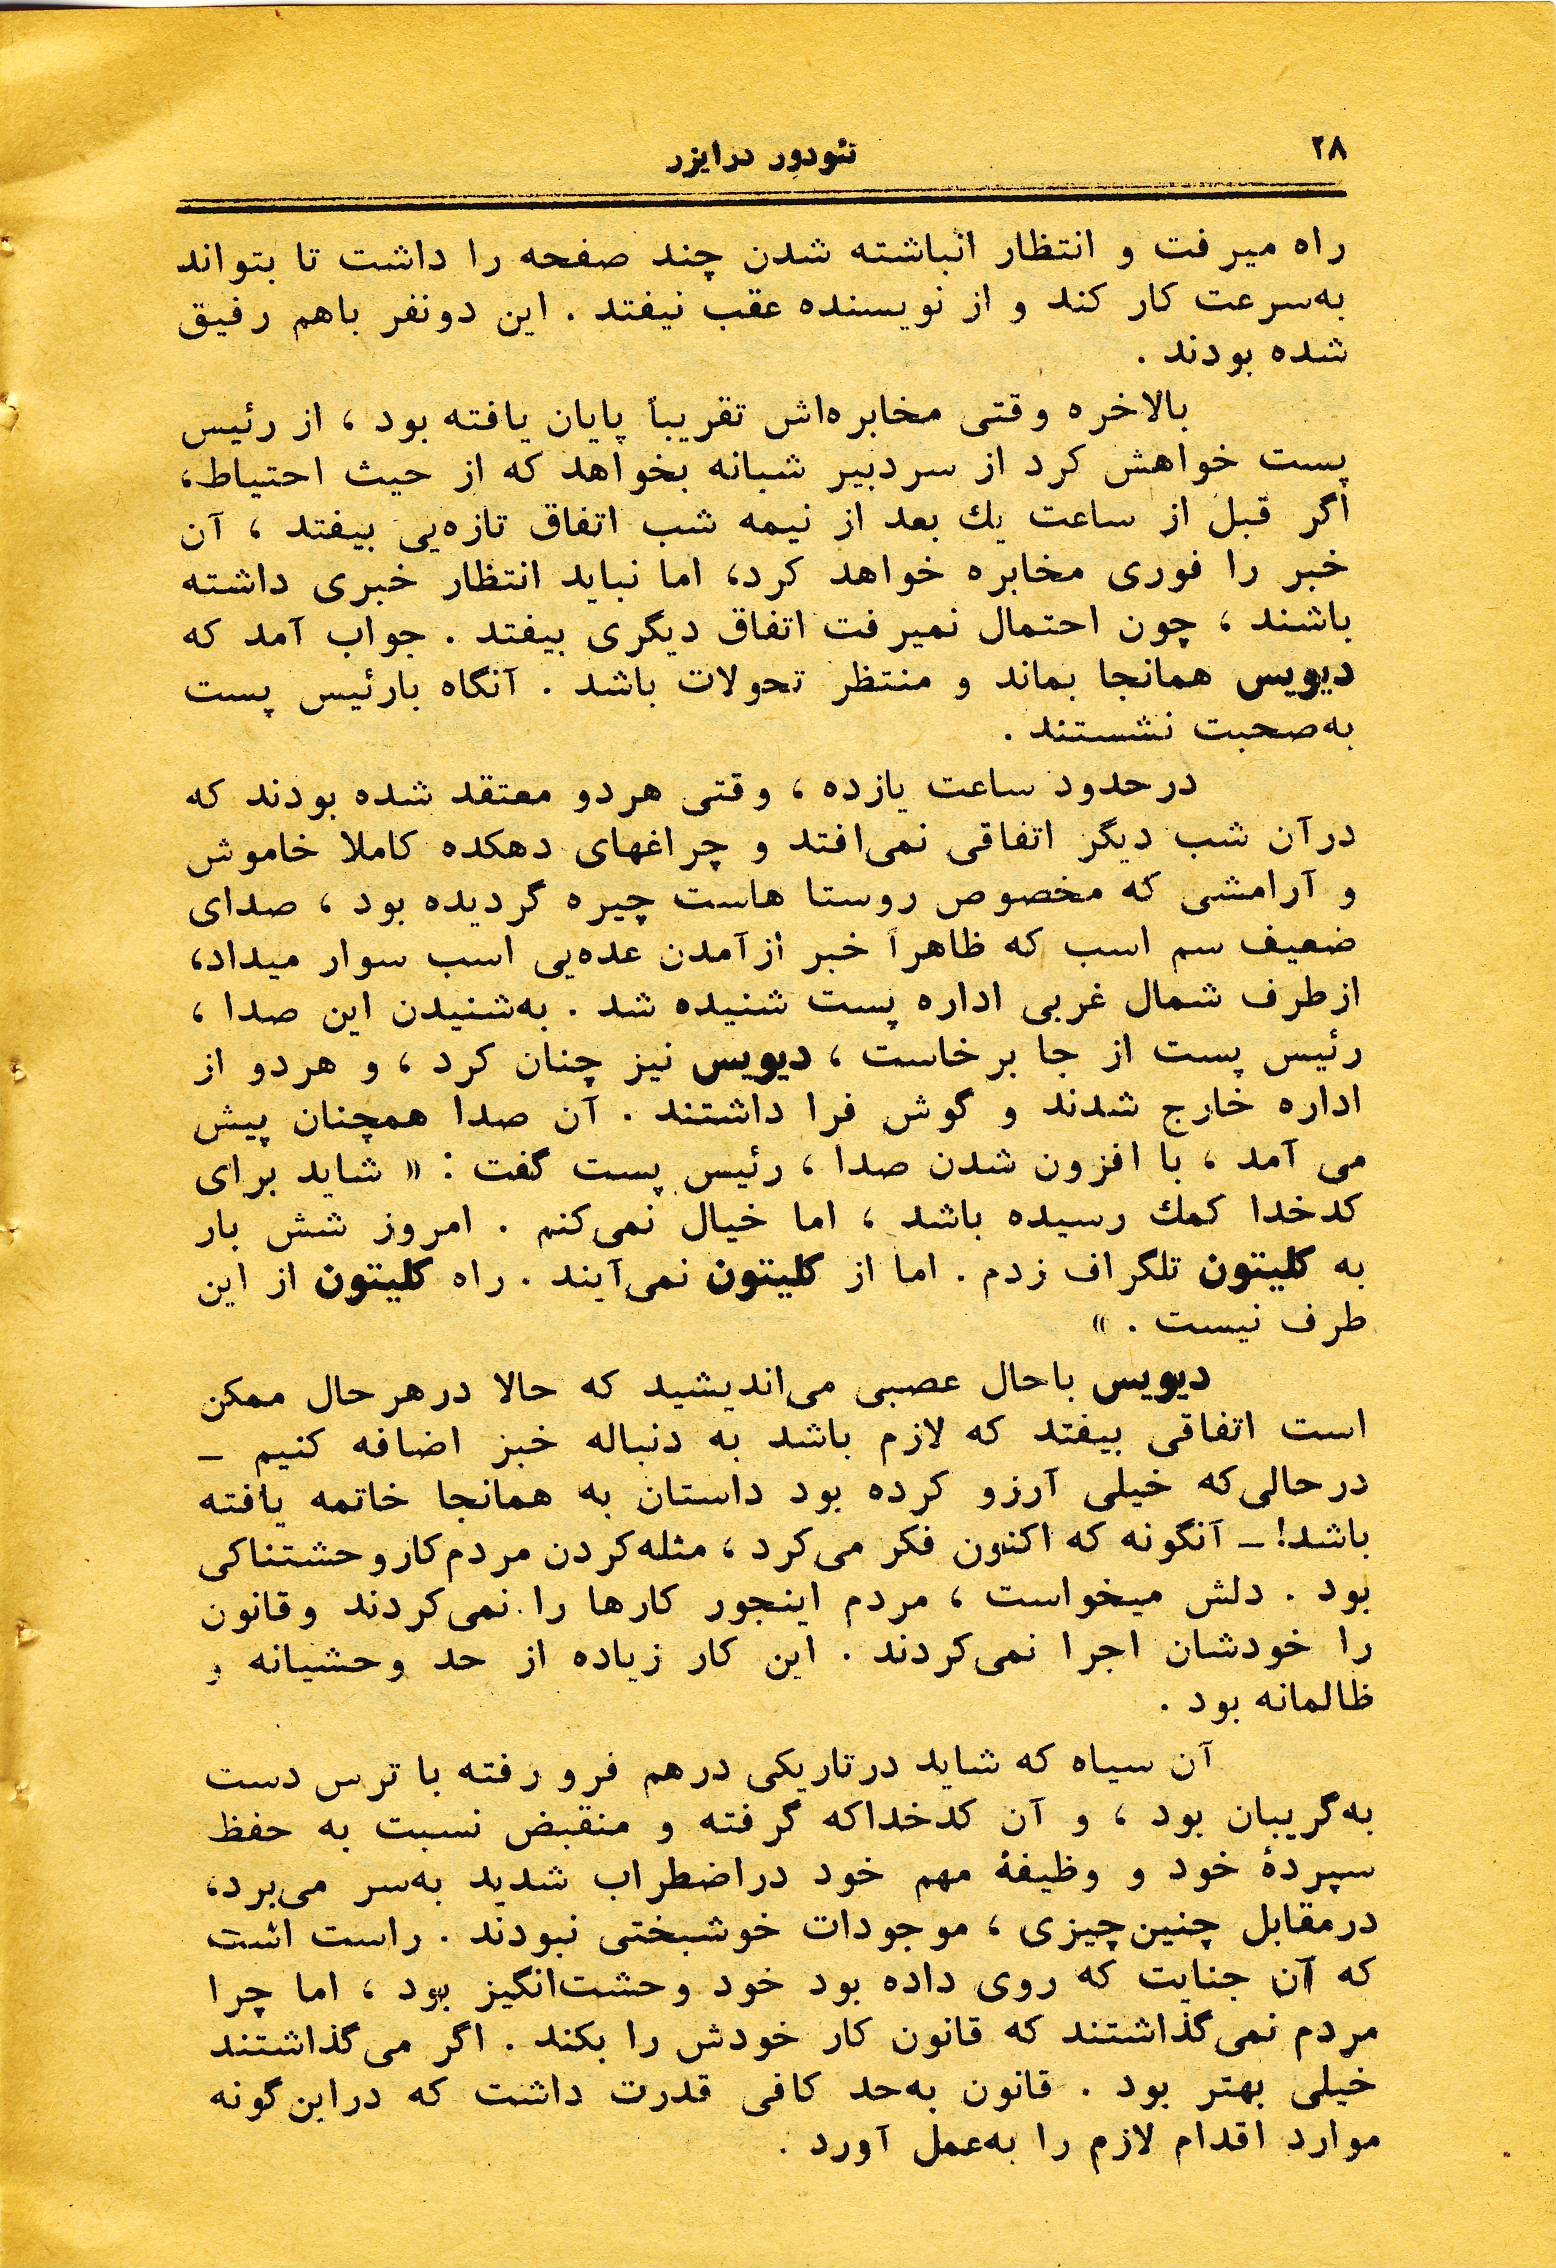 ۲۸
تئودور درایزر
راه میرفت و انتظار انباشته شدن چند صفحه را داشت تا بتواند
به‌سرعت کار کند و از نویسنده عقب نیفتد . این دونفر باهم رفیق
شده بودند .
بالاخره وقتی مخابره‌اش تقریباً پایان یافته بود ، از رئیس
پست خواهش کرد از سردبیر شبانه بخواهد که از حیث احتیاط،
اگر قبل از ساعت یك بعد از نیمه شب اتفاق تازه‌یی بیفتد ، آن
خبر را فوری مخابره خواهد کرد، اما نباید انتظار خبری داشته
باشند ، چون احتمال نمیرفت اتفاق دیگری بیفتد . جواب آمد که
دیویس همانجا بماند و منتظر تحولات باشد . آنگاه بارئیس پست
به‌صحبت نشستند .
درحدود ساعت یازده ، وقتی هردو معتقد شده بودند که
درآن شب دیگر اتفاقی نمی‌افتد و چراغهای دهکده کاملا خاموش
و آرامشی که مخصوص روستا هاست چیره گردیده بود ، صدای
ضعیف سم اسب که ظاهراً خبر ازآمدن عده‌یی اسب سوار میداد،
ازطرف شمال غربی اداره پست شنیده شد . به‌شنیدن این صدا ،
رئیس پست از جا برخاست ، دیویس نیز چنان کرد ، و هردو از
اداره خارج شدند و گوش فرا داشتند . آن صدا همچنان پیش
می آمد ، با افزون شدن صدا ، رئیس پست گفت : « شاید برای
کدخدا کمك رسیده باشد ، اما خیال نمی‌کنم . امروز شش بار
به کلیتون تلگراف زدم . اما از کلیتون نمی‌آیند . راه کلیتون از این
طرف نیست . »
دیویس باحال عصبی می‌اندیشید که حالا درهرحال ممکن
است اتفاقی بیفتد که لازم باشد به دنباله خبز اضافه کنیم ـ
درحالی‌که خیلی آرزو کرده بود داستان به همانجا خاتمه یافته
باشد! ـ آنگونه که اکنون فکر می‌کرد ، مثله‌کردن مردم‌کاروحشتناکی
بود . دلش میخواست ، مردم اینجور کارها را نمی‌کردند وقانون
را خودشان اجرا نمی‌کردند . این کار زیاده از حد وحشیانه و
ظالمانه بود .
آن سیاه که شاید درتاریکی درهم فرو رفته با ترس دست
به‌گریبان بود ، و آن کدخداکه گرفته و منقبض نسبت به حفظ
سپردهٔ خود و وظیفهٔ مهم خود دراضطراب شدید به‌سر می‌برد،
درمقابل چنین‌چیزی ، موجودات خوشبختی نبودند . راست است
که آن جنایت که روی داده بود خود وحشت‌انگیز بود ، اما چرا
مردم نمی‌گذاشتند که قانون کار خودش را بکند . اگر می‌گذاشتند
خیلی بهتر بود . قانون به‌حد کافی قدرت داشت که دراین‌گونه
موارد اقدام لازم را به‌عمل آورد .